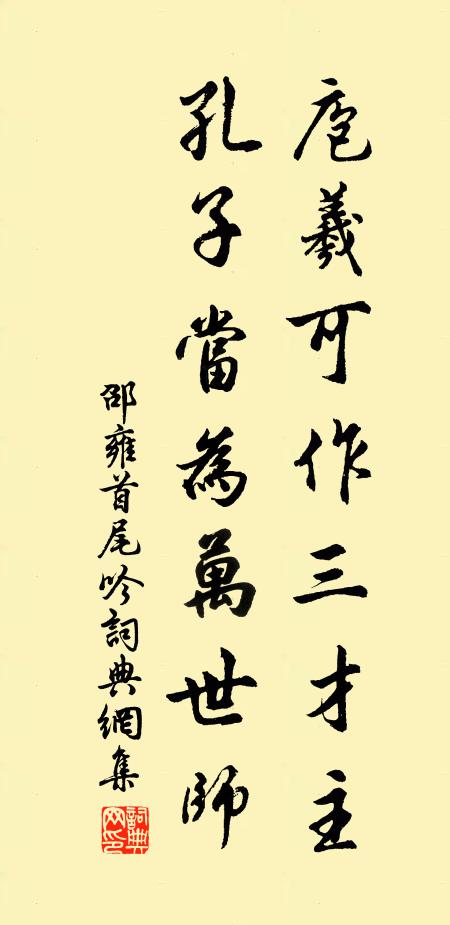 庖羲可作三才主
孔子當為萬世師
邵雍首尾吟詞典網集
詞典网印